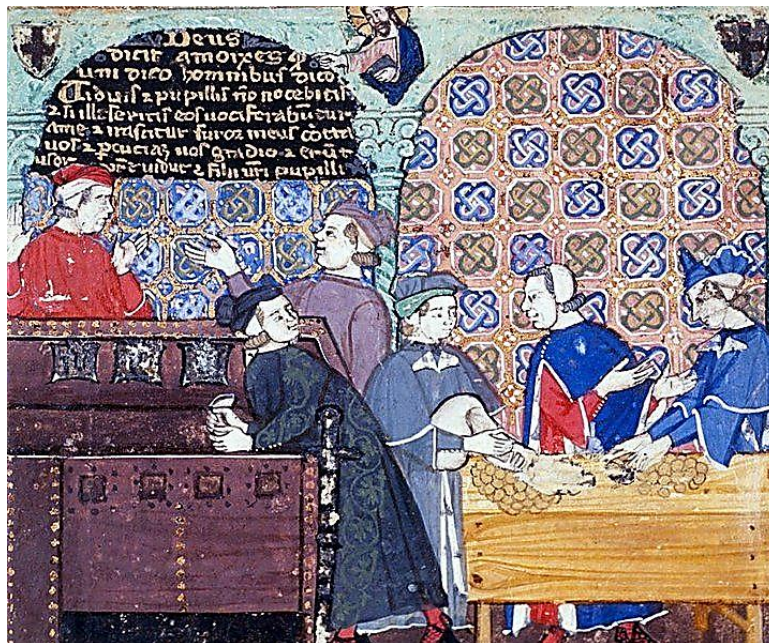 Deus
dicit amoixes q̃
uni dico hominibus dico
Uiduis ⁊ pupillis nõ nocebitis
⁊ si leseritis eos uociferabũtur
⁊ irascitur furor meus cõtra
uos ⁊ pcuciã uos gladio ⁊ erũt
uidue ⁊ filii ur̃i pupilli